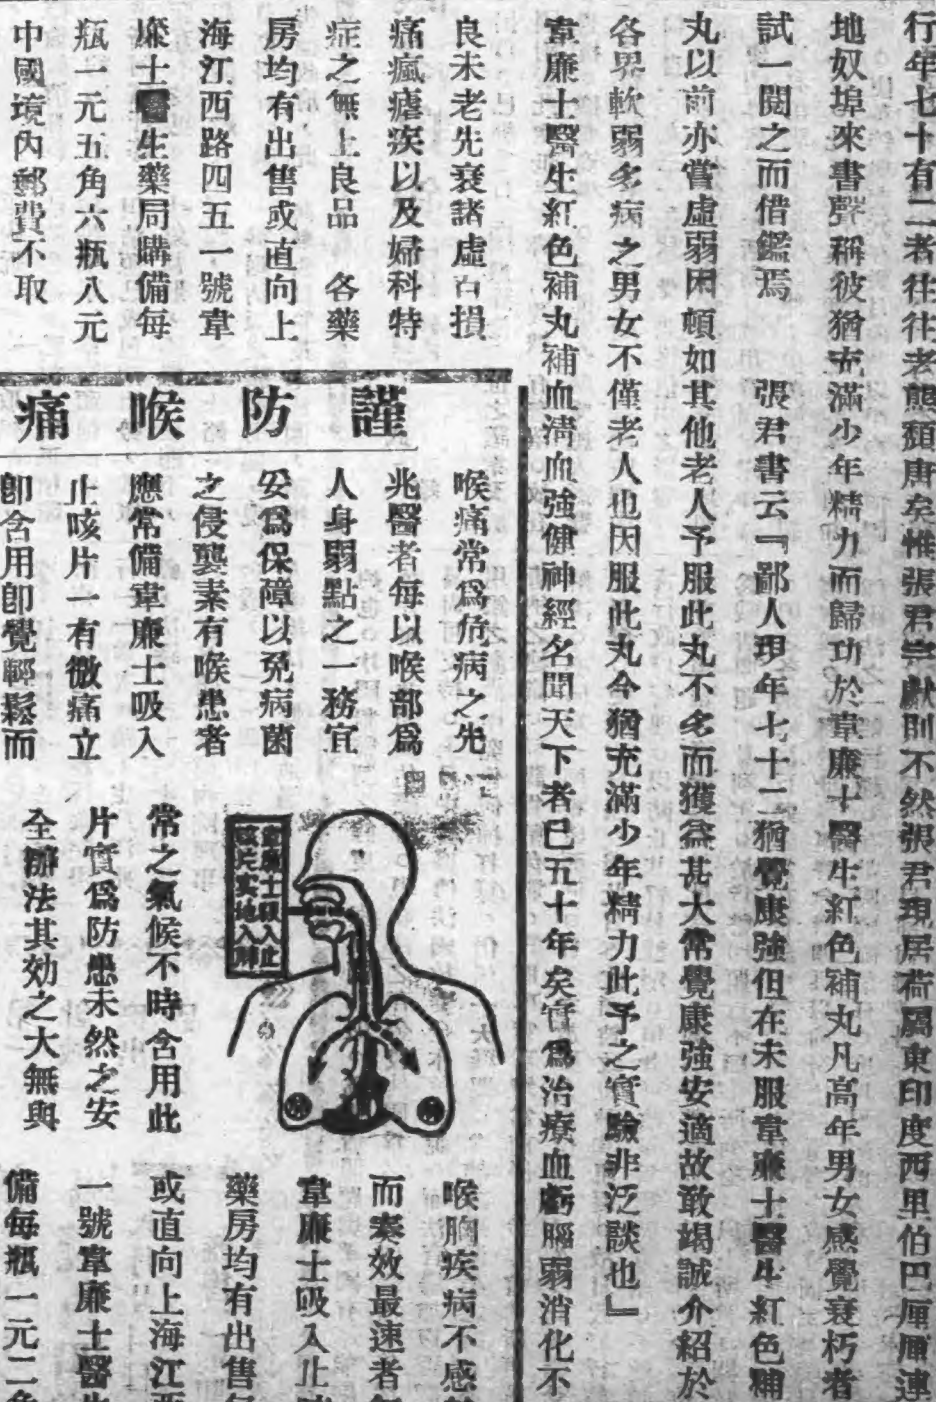 行年七十有二者往往老態頹唐矣惟張君崇獻則不然張君現居荷屬東印度西里伯巴厘厘連
地奴埠來書聲稱彼猶充滿少年精力而歸功於韋廉士醫生紅色補丸凡高年男女感覺衰朽者
試一閱之而借鑑焉 張君書云『鄙人現年七十二猶覺康強但在未服韋廉士醫生紅色補
丸以前亦嘗虛弱困頓如其他老人予服此丸不多而獲益甚大常覺康強安適故敢竭誠介紹於
各界軟弱多病之男女不僅老人也因服此丸今猶充滿少年精力此予之實驗非泛談也』
韋廉士醫生紅色補丸補血清血強健神經名聞天下者已五十年矣實為治療血虧腦弱消化不
良未老先衰諸虛百損
痛瘋瘧疾以及婦科特
症之無上良品 各藥
房均有出售或直向上
海江西路四五一號韋
廉士醫生藥局購備每
瓶一元五角六瓶八元
中國境內郵費不取
謹防喉痛
喉痛常為危病之先
兆醫者每以喉部為
人身弱點之一務宜
妥為保障以免病菌
之侵襲素有喉患者
應常備韋廉士吸入
止咳片一有微痛立
卽含用卽覺輕鬆而
韋廉士吸入止
咳片實地入肺
常之氣候不時含用此
片實為防患未然之安
全辦法其効之大無與
喉胸疾病不感
而奏效最速者
韋廉士吸入止
藥房均有出售
或直向上海江西
一號韋廉士醫生
備每瓶一元二角